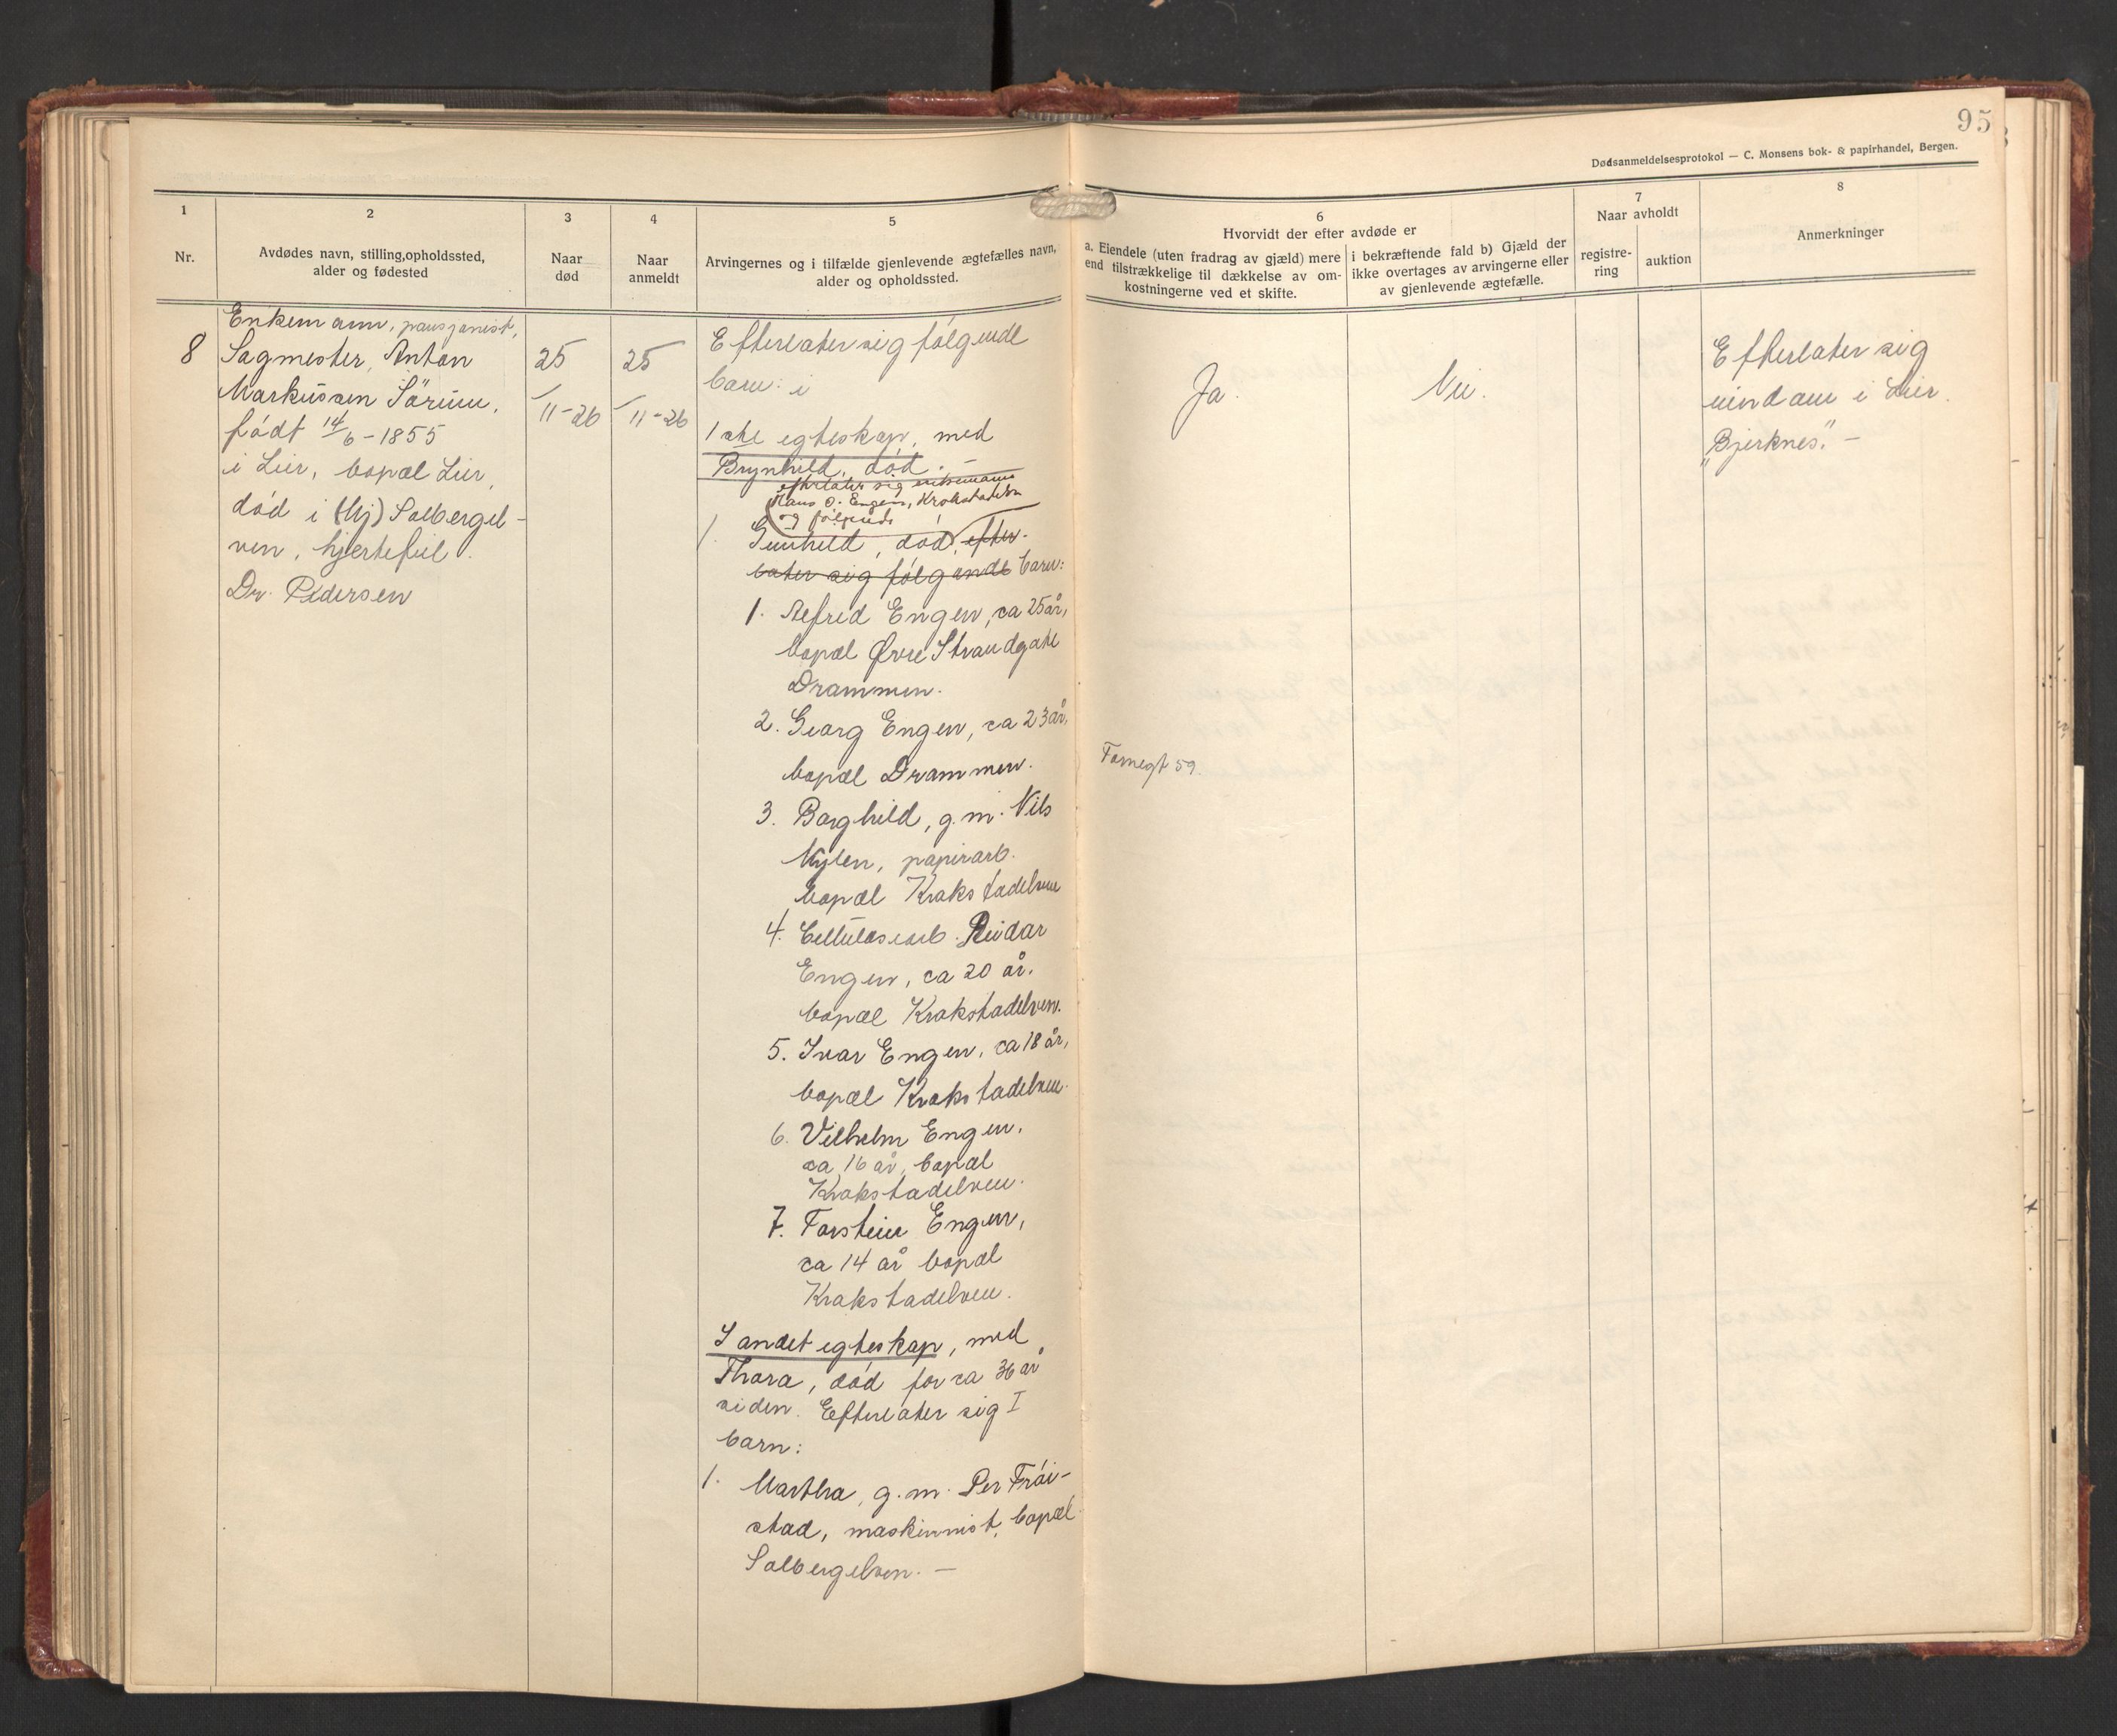 95
Dødsanmeldelsesprotokol — C. Monsens bok- & papirhandel, Bergen.
1
Nr.
2
Avdødes navn, stilling, opholdssted,
alder og fødested
3
Naar
død
4
Naar
anmeldt
5
Arvingernes og i tilfælde gjenlevende ægtefælles navn,
alder og opholdssted.
6
Hvorvidt der efter avdøde er
a. Eiendele (uten fradrag av gjæld) mere
end tilstrækkelige til dækkelse av om-
kostningerne ved et skifte.
i bekræftende fald b) Gjæld der
ikke overtages av arvingerne eller
av gjenlevende ægtefælle.
7
Naar avholdt
registre-
ring
auktion
8
Anmerkninger
8
Enkemann, pensjonist,
Sagmester, Anton
Markussen Sörum,
født 14/6-1855
i Lier, bopæl Lier,
død i (Nj) Solbergel-
ven, hjertefeil.
Dr. Pedersen
25
/11-26
25
/11-26
Efterlater sig følgende
barn: i
1ste egteskap, med
Brynhild, död. —
efterlater sig enkemann
Hans O. Engen, Krokstadelva
og følgende
1. Gunhild, död, efter-
later sig følgende barn:
1. Alfred Engen, ca 25 år,
bopæl Øvre Strandgate
Drammen.
2. Georg Engen, ca 23 år,
bopæl Drammen.
3. Borghild, g.m. Nils
Myhren, papirarb.
bopæl Krokstadelven
4. Cellulosearb. Reidar
Engen, ca 20 år.
bopæl Krokstadelven.
5. Ivar Engen, ca 18 år,
bopæl Krokstadelven.
6. Vilhelm Engen,
ca 16 år, bopæl
Krokstadelven.
7. Torstein Engen,
ca 14 år bopæl
Krokstadelven.
I andet egteskap, med
Thora, død for ca 36 år
siden. Efterlater sig I
barn:
1. Martha, g.m. Per Fröi-
stad, maskinnist, bopæl
Solbergelven. —
Ja.
59.
Nei.
Efterlater sig
eiendom i Lier.
"Bjerknes". —